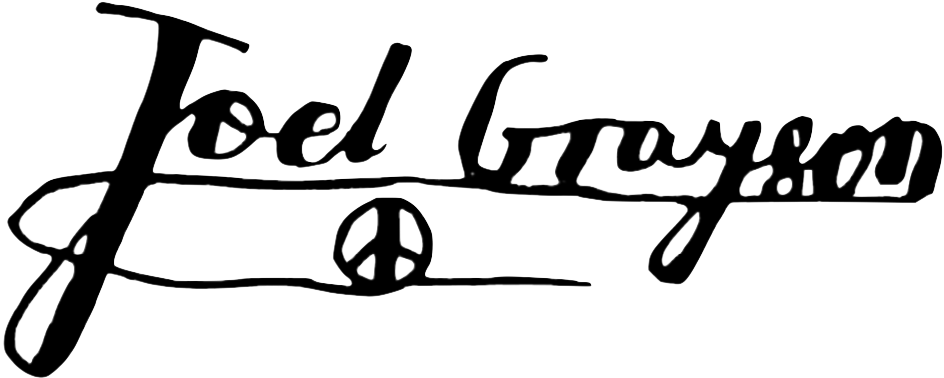 Joel Grayson